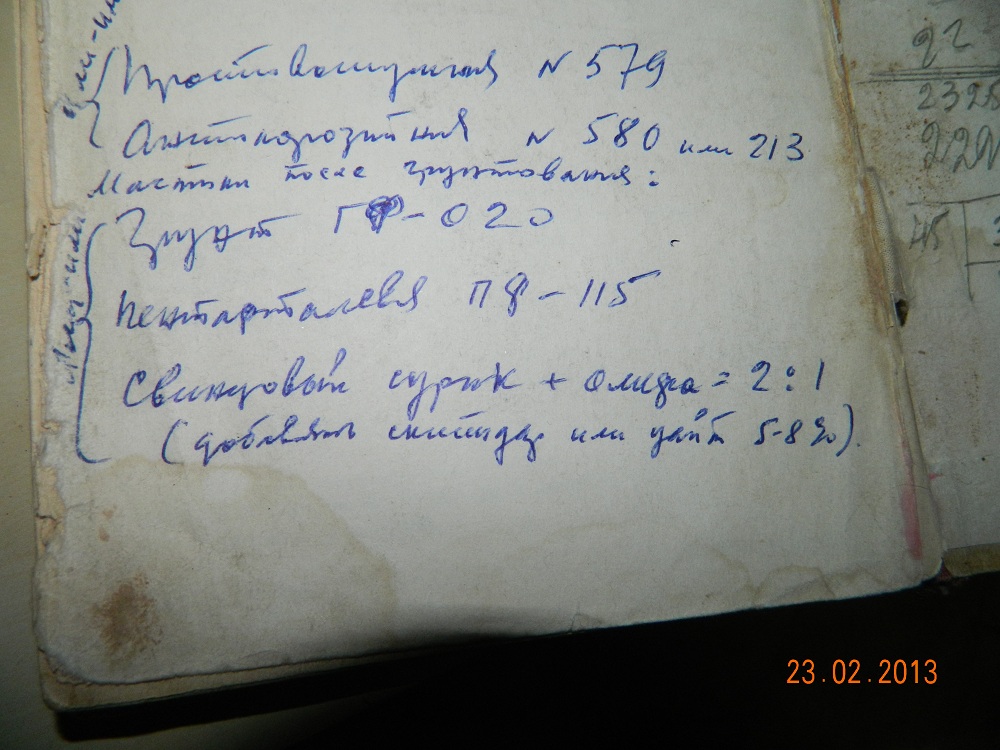 Противошумная N 579
Антикорозийная N 580 или 213
Мастики после грунтования:
Грунт ГФ-020
Пентафталевая ПФ-115
Свинцовый сурик + олифа = 2:1
(добавлять скипидар или уайт 5-8%).
92
2325
45
23.02.2013